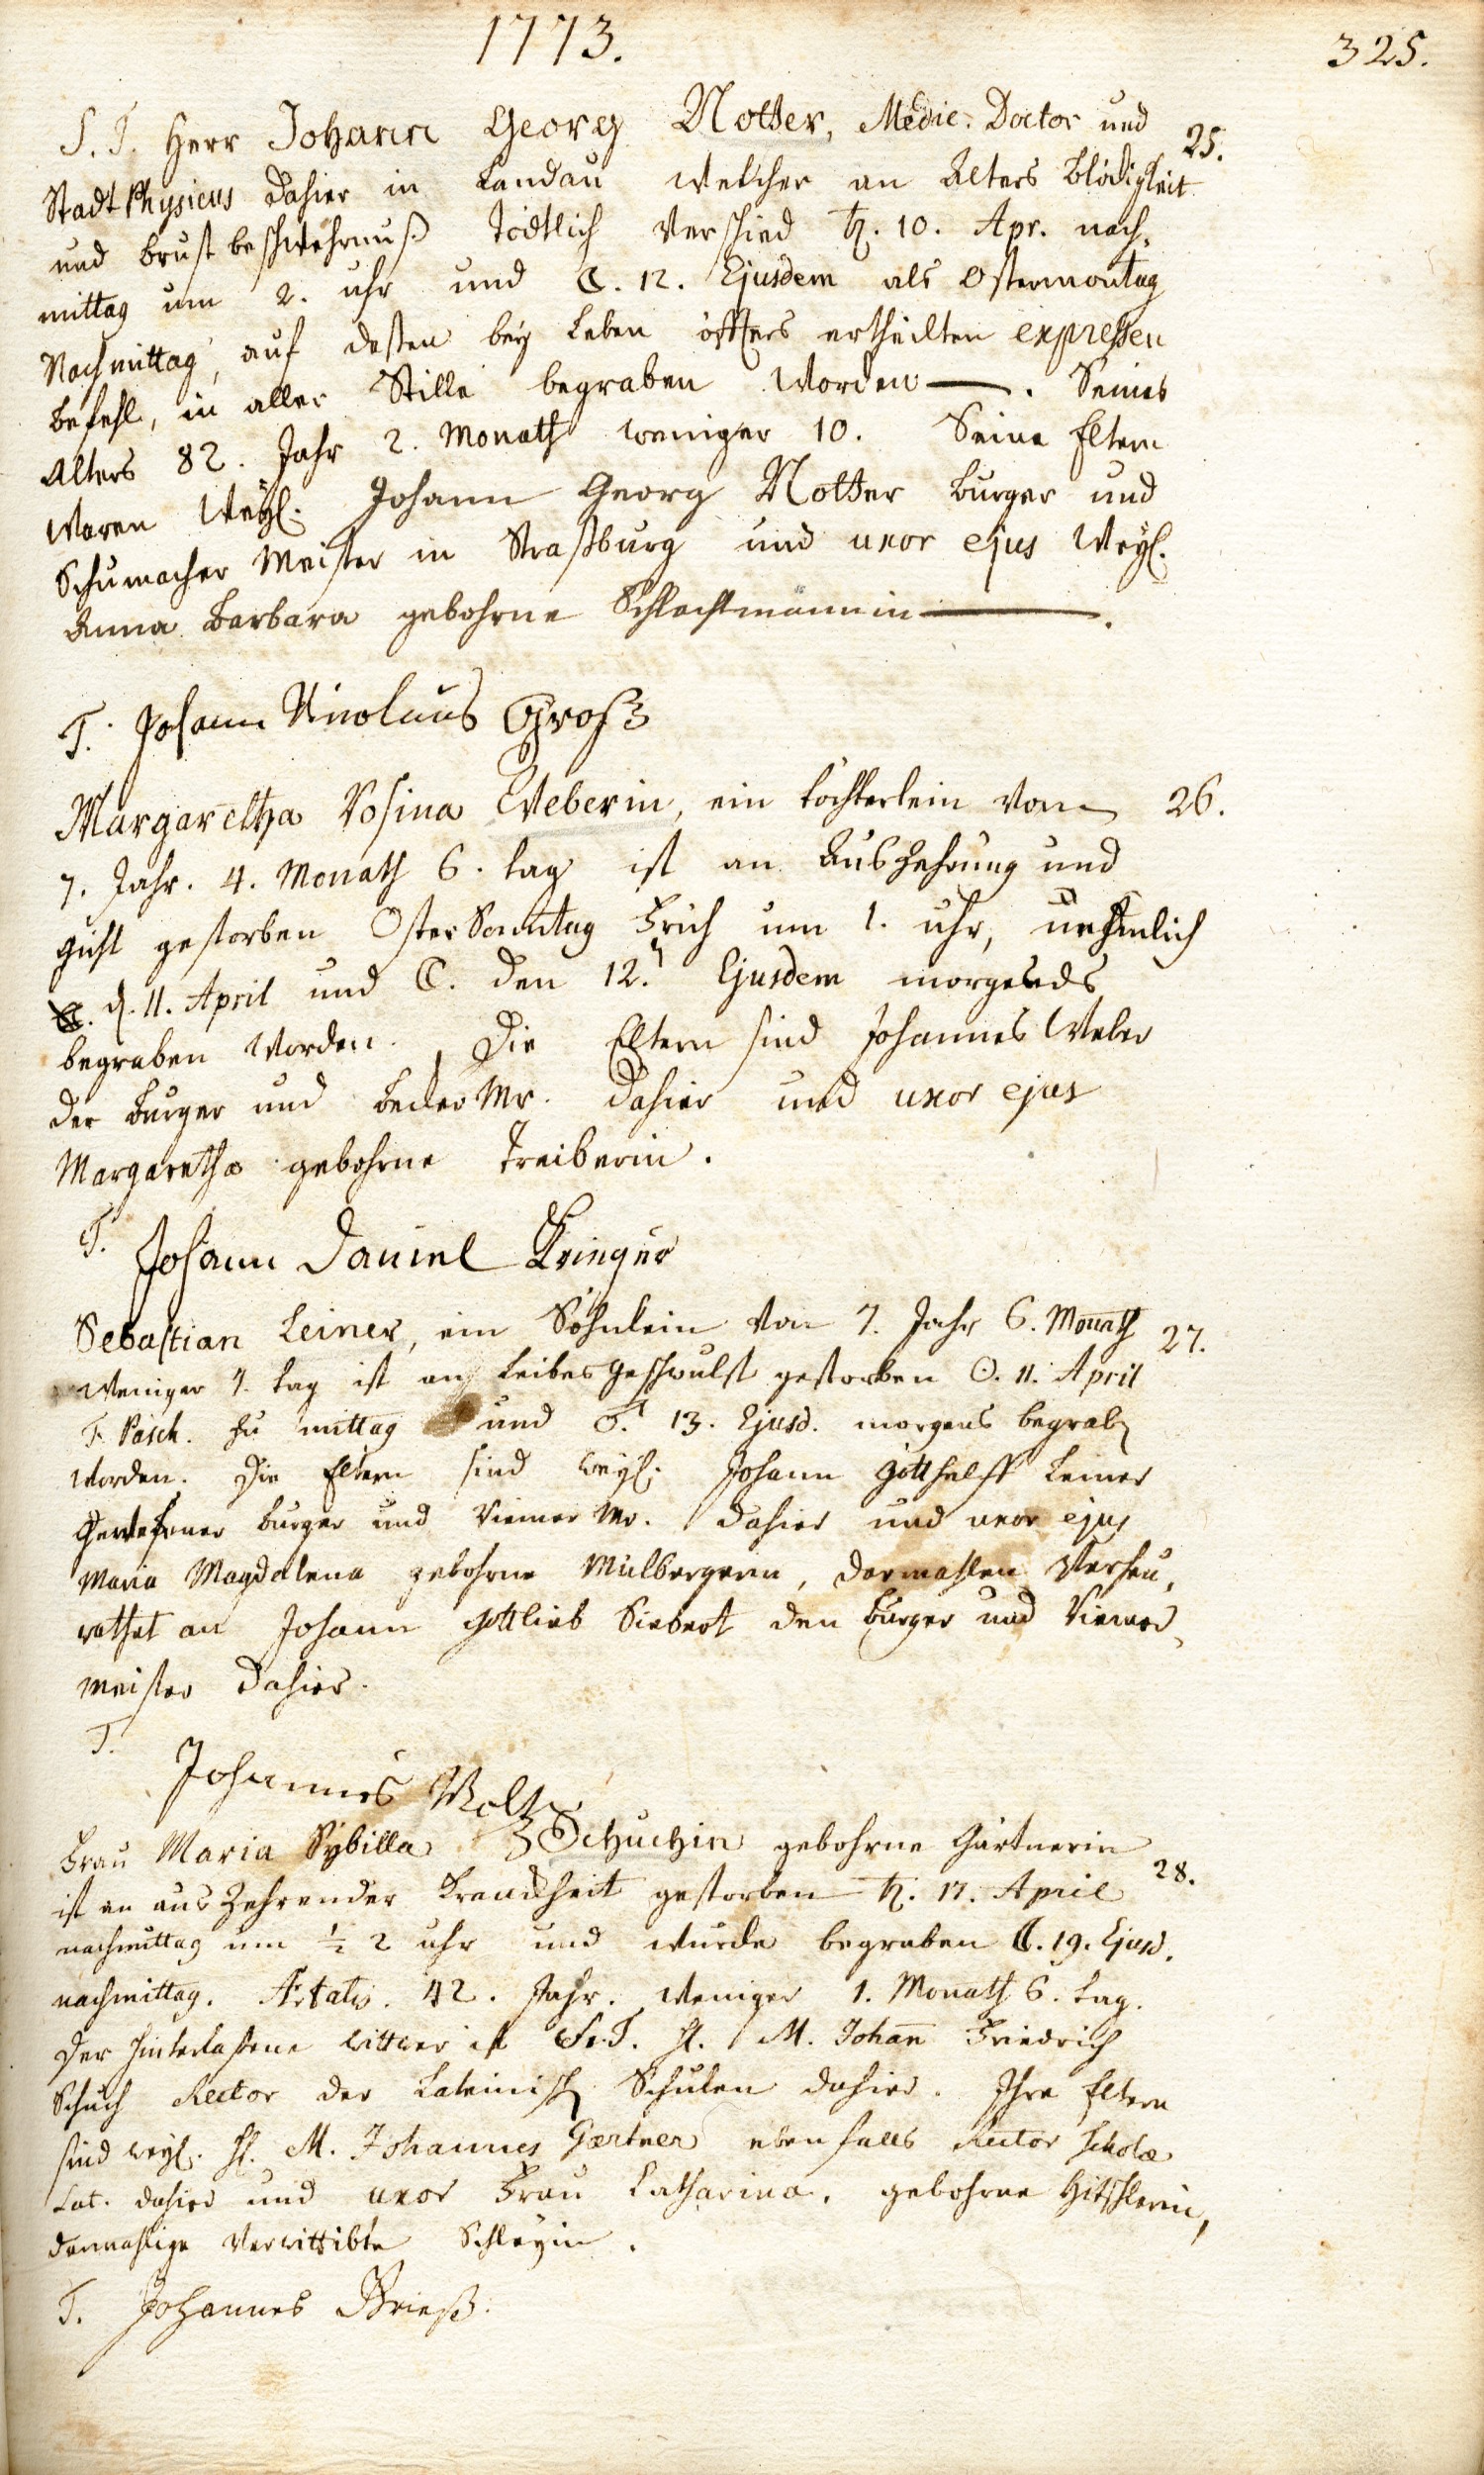 1773.
325.
S. T. Herr Johann Georg Notter, Medic. Doctor und 25.
Stadt Physicus dahier in Landau welcher an Alters Blödigkeit
und brust beschwehrnuß Tödtlich verschied ♄. 10. Apr. nach-
mittag um 2. uhr und ☾. 12. Ejusdem als Ostermontag
Nachmittag, auf deßen beÿ Leben öffters ertheilten expressen
Befehl, in aller Stille begraben worden —. Seines
Alters 82. Jahr 2. Monath weniger 10. Seine Eltern
waren Weÿl. Johann Georg Notter Burger und
Schumacher Meister in Straßburg und uxor ejus Weÿl.
Anna Barbara gebohrne Schlachtmännin —.
T. Johann Nicolaus Groß
Margaretha Rosina Weberin, ein töchterlein von 26.
7. Jahr. 4. Monath 6. tag ist an Auszehrung und
gicht gestorben Oster Sonntag Früh um 1. uhr, nehmlich
d. 11. April und ☾. den 12. Ejusdem morgends
begraben worden. Die Eltern sind Johannes Weber
der Burger und Becker Mr. dahier und uxor ejus
Margaretha gebohrne Treiberin.
T. Johann Daniel
Sebastian Leiner, ein Söhnlein von 7. Jahr 6. Monath 27.
weniger 4. tag ist an Leibes geschwulst gestorben ☉. 11. April
F. Pasch. zu mittag und ♂. 13. Ejusd. morgens begrab
worden. Die Eltern sind weÿl. Johann Gotthelff Leiner
Gewesener Burger und Riemer Mr. dahier und uxor ejus
Maria Magdalena gebohrne Mülbergerin, dermahlen Verheu-
rathet an Johann Gottlieb Siebert den Burger und Riemer-
meister dahier.
T. Johannes Voltz
Frau Maria Sybilla Schuchin gebohrne Gärtnerin
ist an aus Zehrender Kranckheit gestorben ♄. 17. April 28.
nachmittag um ½ 2 uhr und wurde begraben ☾. 19. Ejusd.
nachmittag. Ætatis. 42. Jahr. weniger 1. Monath 6. tag.
Der hinterlaßene wittwer ist S. T. H. M. Johañ Friedrich
Schuch Rector der Lateinisch Schulen dahier. Ihre Eltern
sind weÿl. H. M. Johannes Gærtner ebenfalls Rector scholæ
Lat. dahier und uxor Frau Catharina. gebohrne Hitschlerin,
dermahlige Verwittibte Schleÿin.
T. Johannes Brieß.